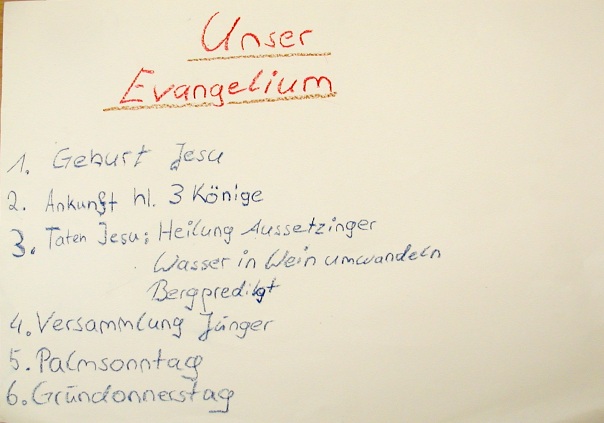 Unser
Evangelium
1. Geburt Jesu
2. Ankunft hl. 3 Könige
3. Taten Jesu: Heilung Aussetzinger
Wasser in Wein umwandeln
Bergpredigt
4. Versammlung Jünger
5. Palmsonntag
6. Gründonnerstag